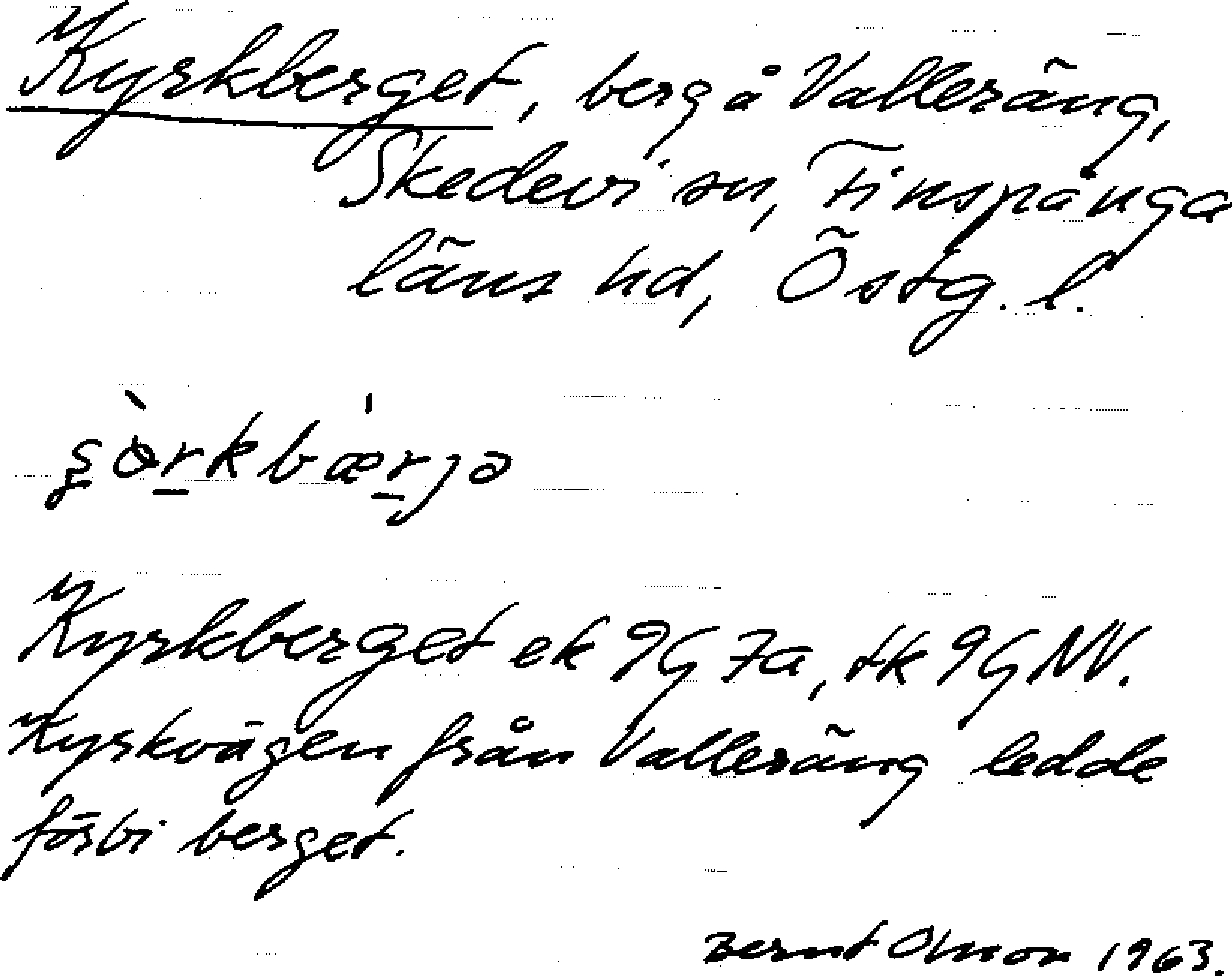 Kyrkberget, berg å Valleräng,
Skedevi sn, Finspånga
läns hd, Östg. l.
Kyrkberget ek 9G 7a, tk 9G NV.
Kyrkvägen från Valleräng ledde
förbi berget.
Bernt Olsson 1963.